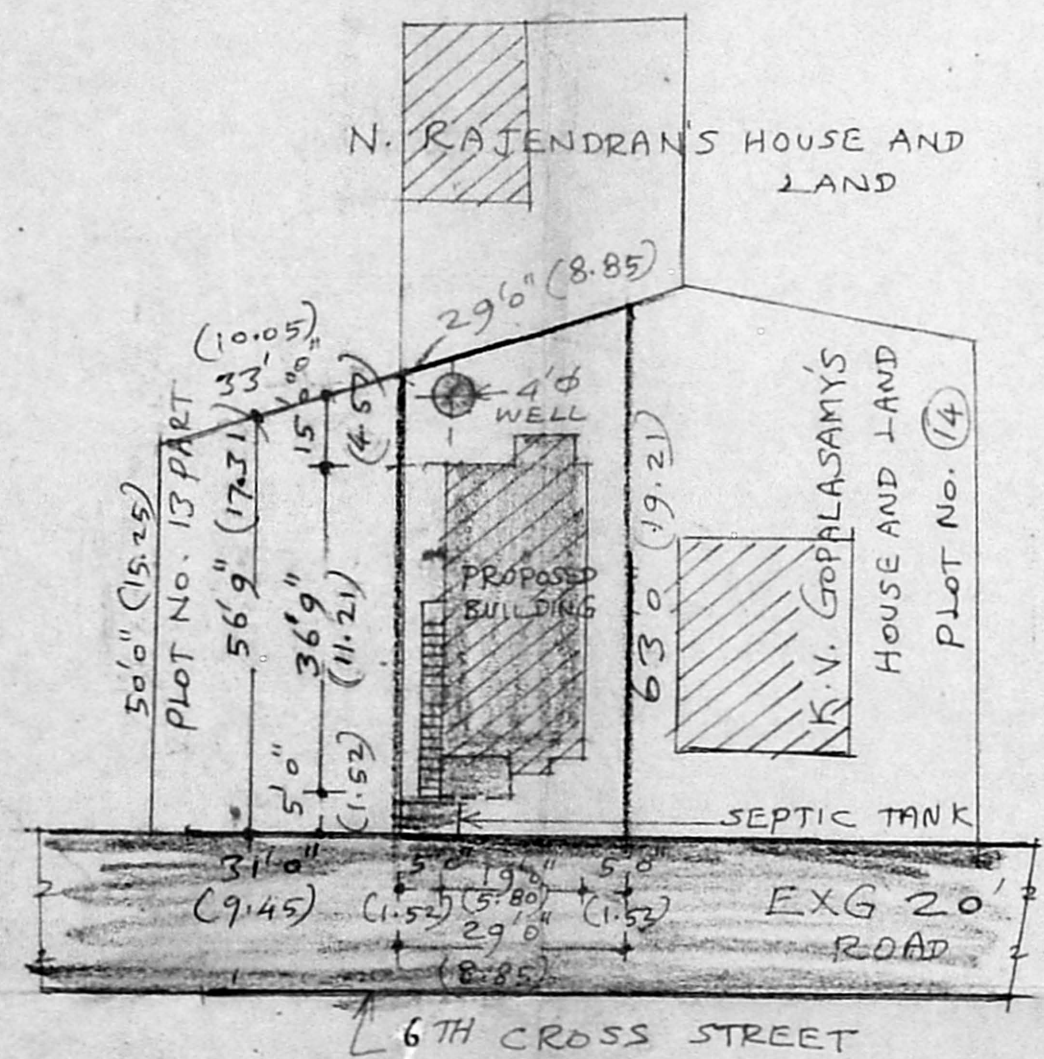 N. RAJENDRAN'S HOUSE AND
LAND
29'0" (8.85)
(10.05)
33'0"
15'0"
(4.57)
4'Φ
WELL
50'0" (15.25)
PLOT No. 13 PART
56'9" (17.31)
36'9"
(11.21)
5'0"
(1.52)
PROPOSED
BUILDING
63'0" (19.21)
K.V. GOPALASAMY'S
HOUSE AND LAND
PLOT No. 14
SEPTIC TANK
31'0"
(9.45)
5'0"
19'0"
5'0"
(1.52)
(5.80)
(1.52)
29'0"
(8.85)
EXG 20'
ROAD
6TH CROSS STREET